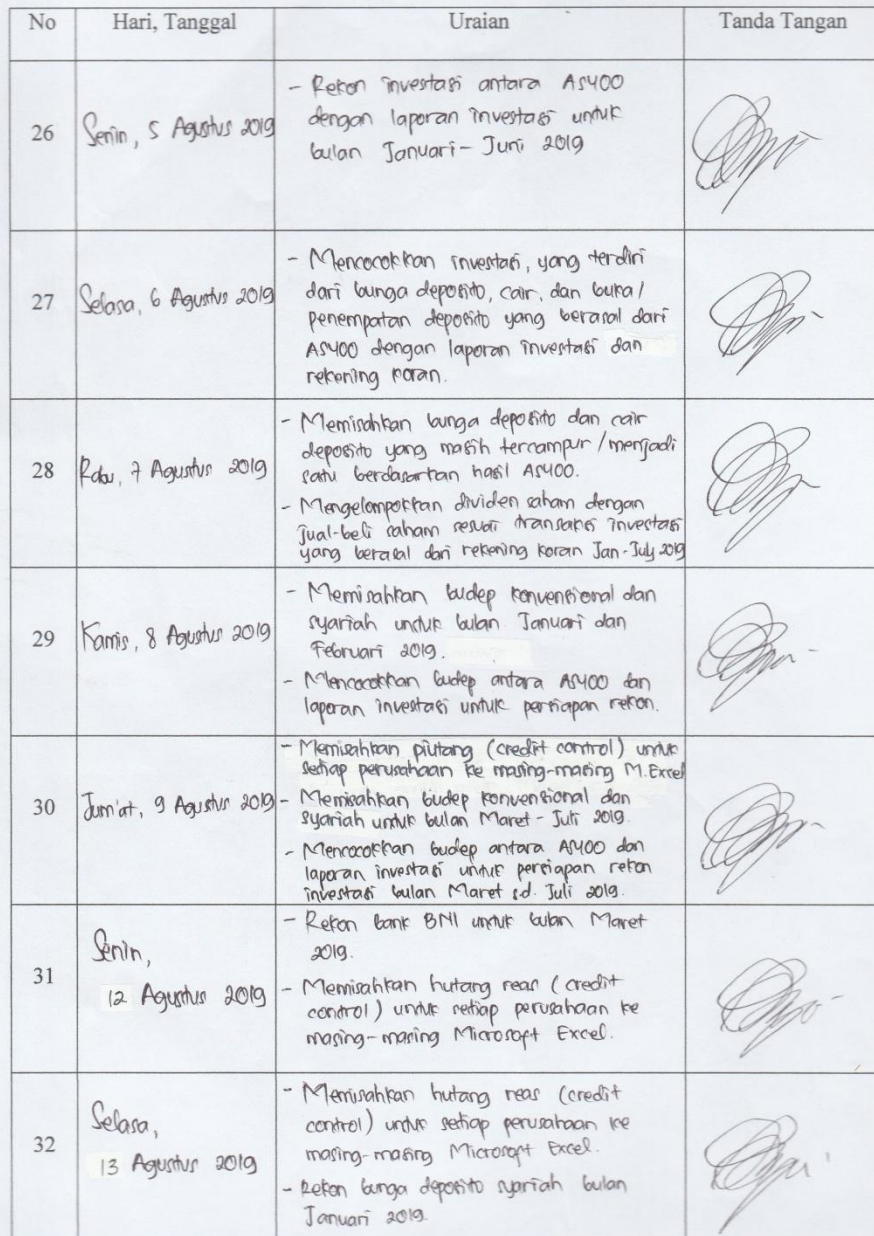 No Hari, Tanggal Uraian Tanda Tangan
26 Senin, 5 Agustus 2019
- Rekon investasi antara AS400
dengan laporan investasi untuk
bulan Januari - Juni 2019
27 Selasa, 6 Agustus 2019
- Mencocokkan investasi, yang terdiri
dari bunga deposito, cair, dan buka/
penempatan deposito yang berasal dari
AS400 dengan laporan investasi dan
rekening koran.
28 Rabu, 7 Agustus 2019
- Memisahkan bunga deposito dan cair
deposito yang masih tercampur / menjadi
satu berdasarkan hasil AS400.
- Mengelompokkan dividen saham dengan
jual-beli saham sesuai transaksi investasi
yang berasal dari rekening koran Jan - July 2019
29 Kamis, 8 Agustus 2019
- Memisahkan budep konvensional dan
syariah untuk bulan Januari dan
Februari 2019.
- Mencocokkan budep antara AS400 dan
laporan investasi untuk persiapan rekon.
30 Jum'at, 9 Agustus 2019
- Memisahkan piutang (credit control) untuk
setiap perusahaan ke masing-masing M.Excel
- Memisahkan budep konvensional dan
syariah untuk bulan Maret - Juli 2019.
- Mencocokkan budep antara AS400 dan
laporan investasi untuk persiapan rekon
investasi bulan Maret s.d. Juli 2019.
31 Senin,
12 Agustus 2019
- Rekon bank BNI untuk bulan Maret
2019.
- Memisahkan hutang reas (credit
control) untuk setiap perusahaan ke
masing-masing Microsoft Excel.
32 Selasa,
13 Agustus 2019
- Memisahkan hutang reas (credit
control) untuk setiap perusahaan ke
masing-masing Microsoft Excel.
- Rekon bunga deposito syariah bulan
Januari 2019.